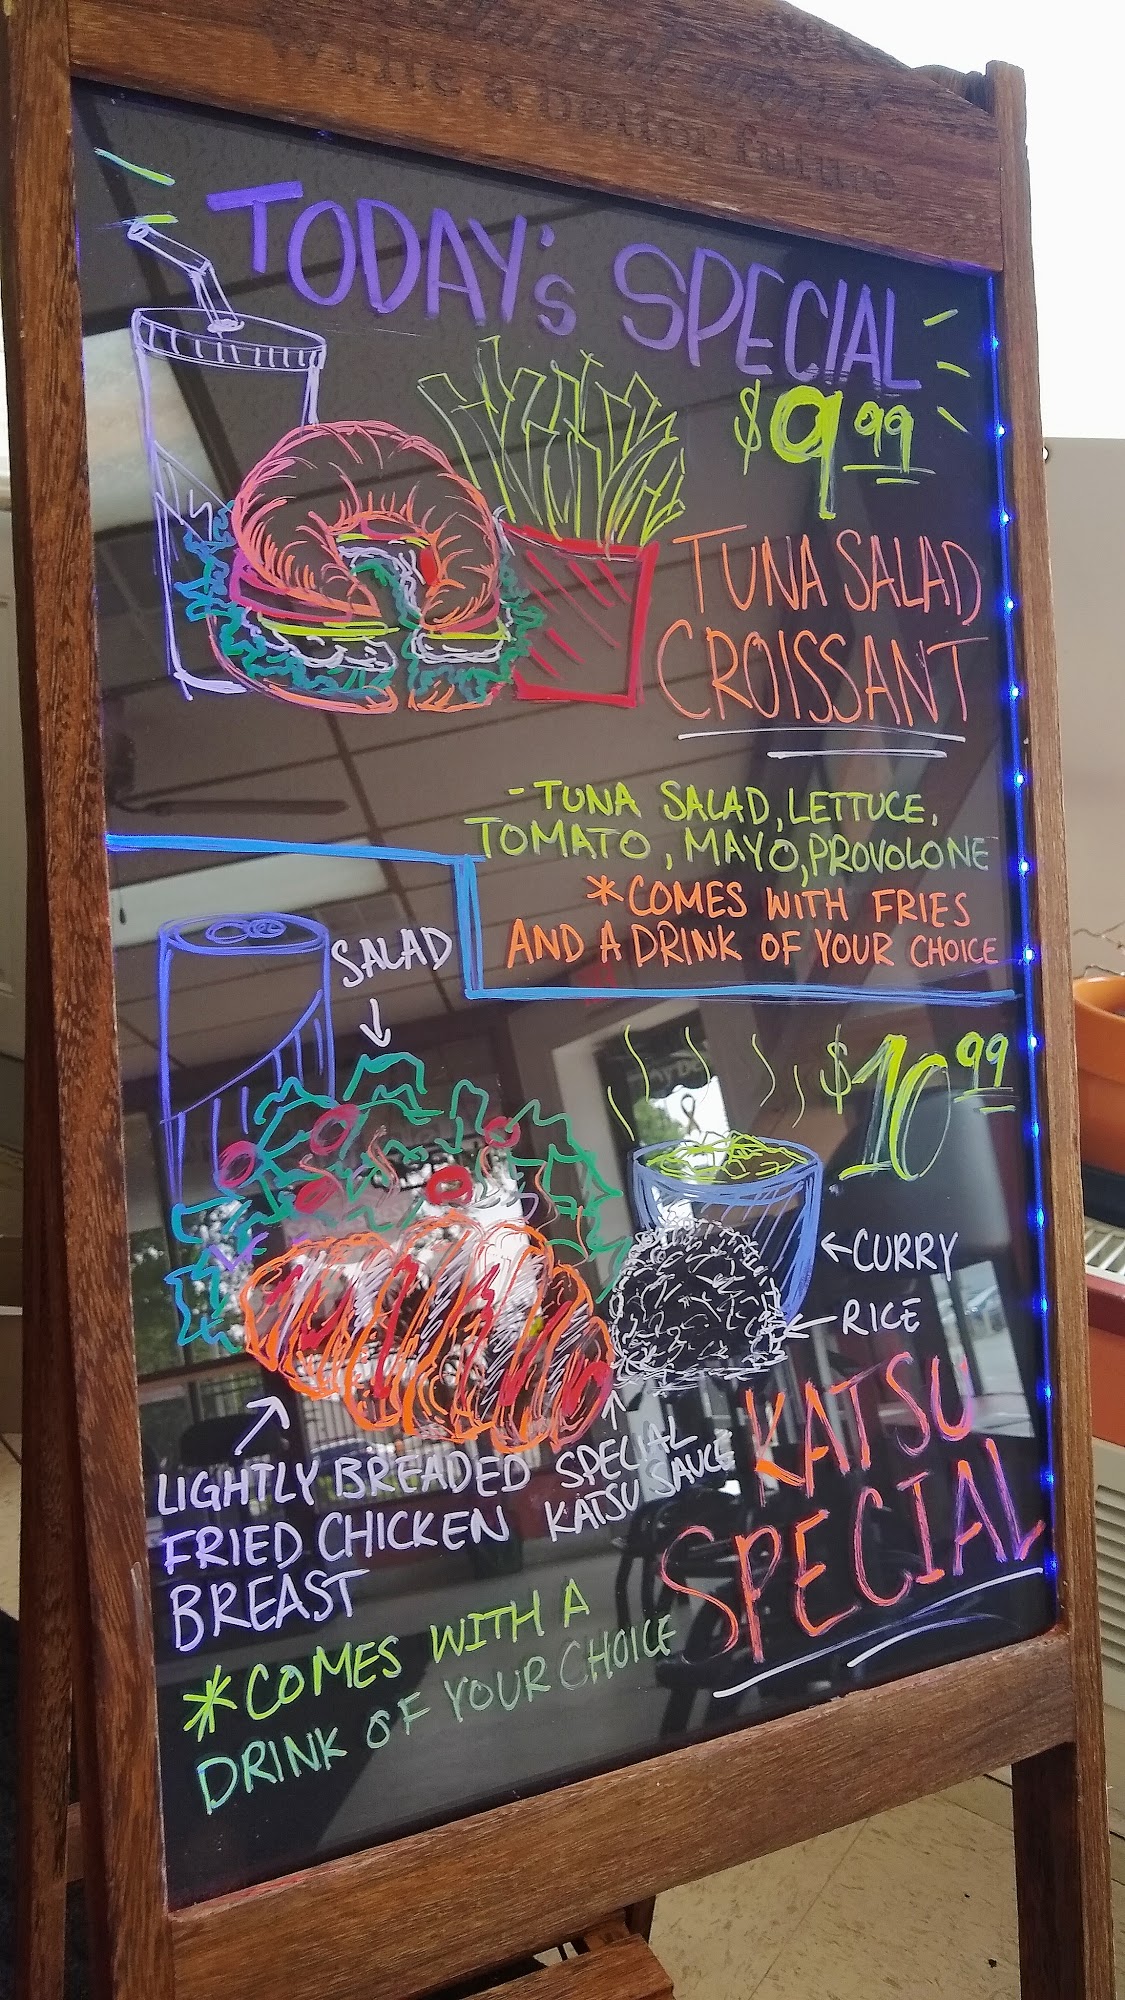 Write a better future
TODAY's SPECIAL
$9.99
TUNA SALAD
CROISSANT
- TUNA SALAD, LETTUCE,
TOMATO, MAYO, PROVOLONE
*COMES WITH FRIES
AND A DRINK OF YOUR CHOICE
SALAD
$10.99
←CURRY
←RICE
KATSU
SPECIAL
LIGHTLY BREADED
FRIED CHICKEN
BREAST
SPECIAL
KATSU SAUCE
*COMES WITH A
DRINK OF YOUR CHOICE